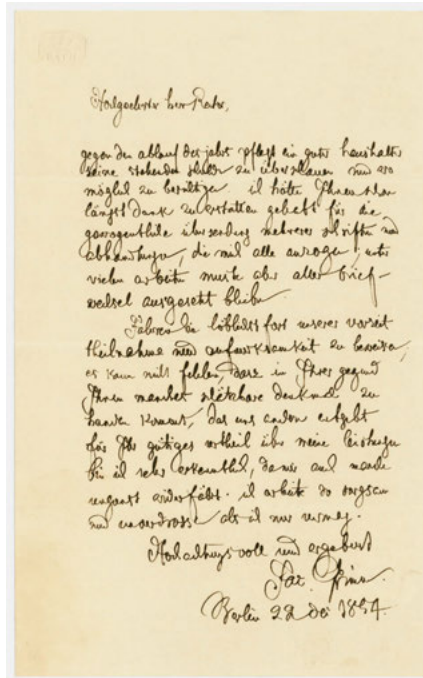 Hochgeehrter herr Rector,
gegen den ablauf des jahrs pflegt ein guter haushalter
seine stehenden schulden zu überschauen und wo
möglich zu berichtigen. ich hätte Ihnen schon
längst dank zu erstatten gehabt für die
übersendung mehrerer schriften und
abhandlungen, die mich alle anzogen, unter
vielen arbeiten muste aber aller brief-
wechsel ausgesetzt bleiben
Fahren Sie löblichst fort unserer vorzeit
theilnahme und aufmerksamkeit zu beweisen,
es kann nicht fehlen, dasz in Ihrer gegend
Ihnen manches schätzbare denkmal zu
handen kommt, das uns andern entgeht
für Ihr gütiges urtheil über meine leistungen
bin ich sehr erkenntlich, da mir auch manche
ungunst widerfährt. ich arbeite so sorgsam
und unverdrossen als ich nur vermag.
Hochachtungsvoll und ergebenst
Jac. Grimm.
Berlin 22 dec 1854.